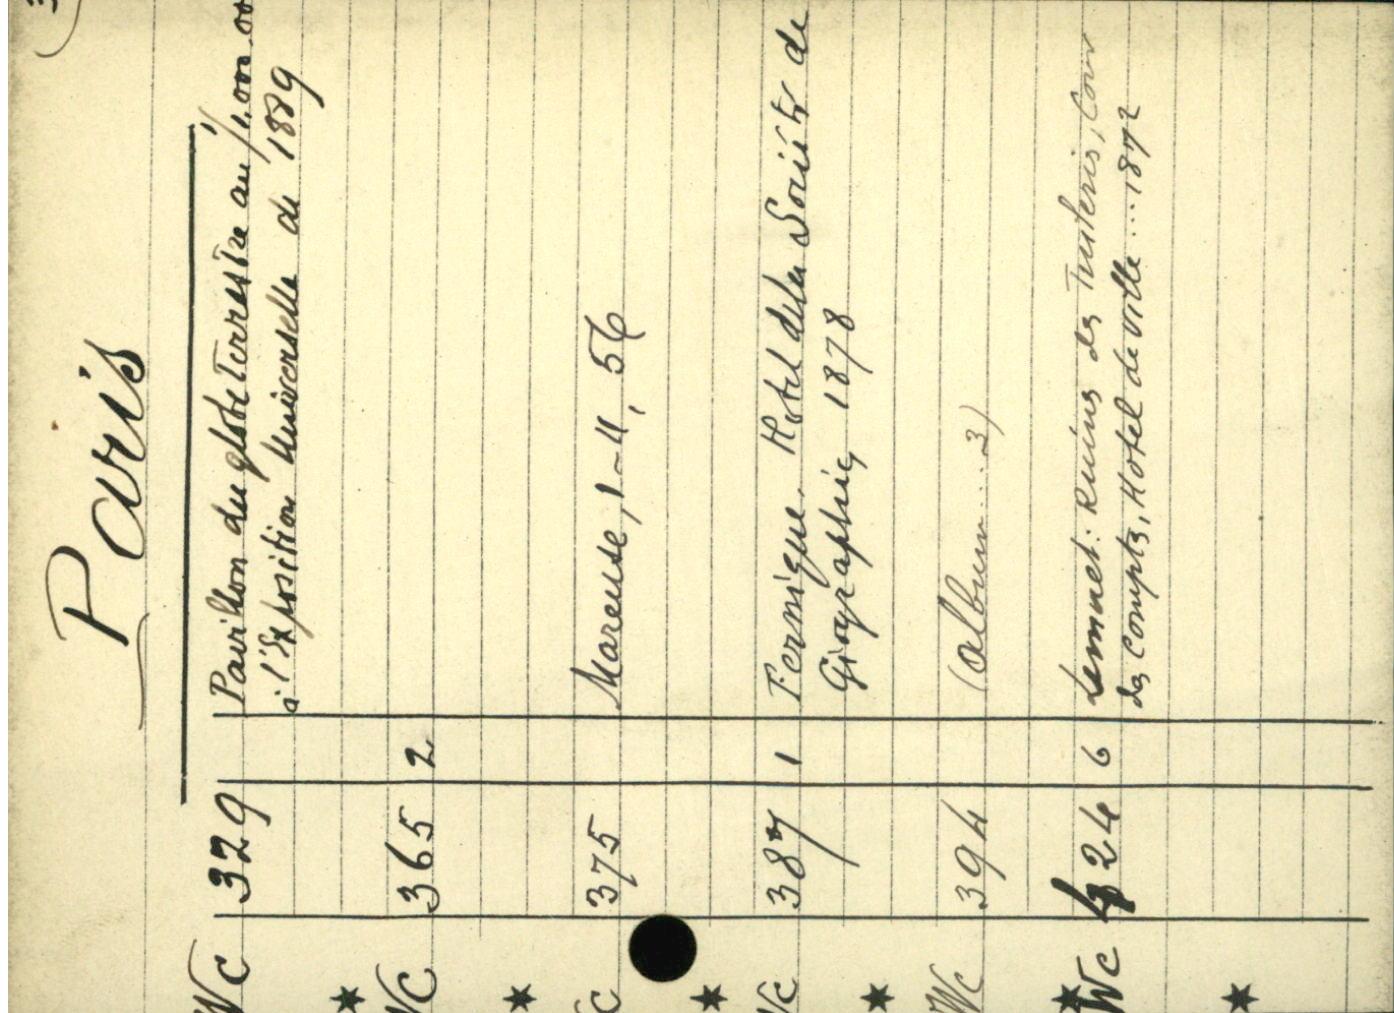 3
Paris
Wc 329 Pavillon du globe Terrestre au 1/1.000.00
à l'Exposition Universelle de 1889
Wc 365 2
c 375 Mareuse, I-II, 56
Wc 387 1 Fernique. Hotel de la Société de
Géographie, 1878
Wc 394 (album...3)
Wc 424 6 Ruines des Tuileries, Cour
des Comptes, Hotel de ville ...1872